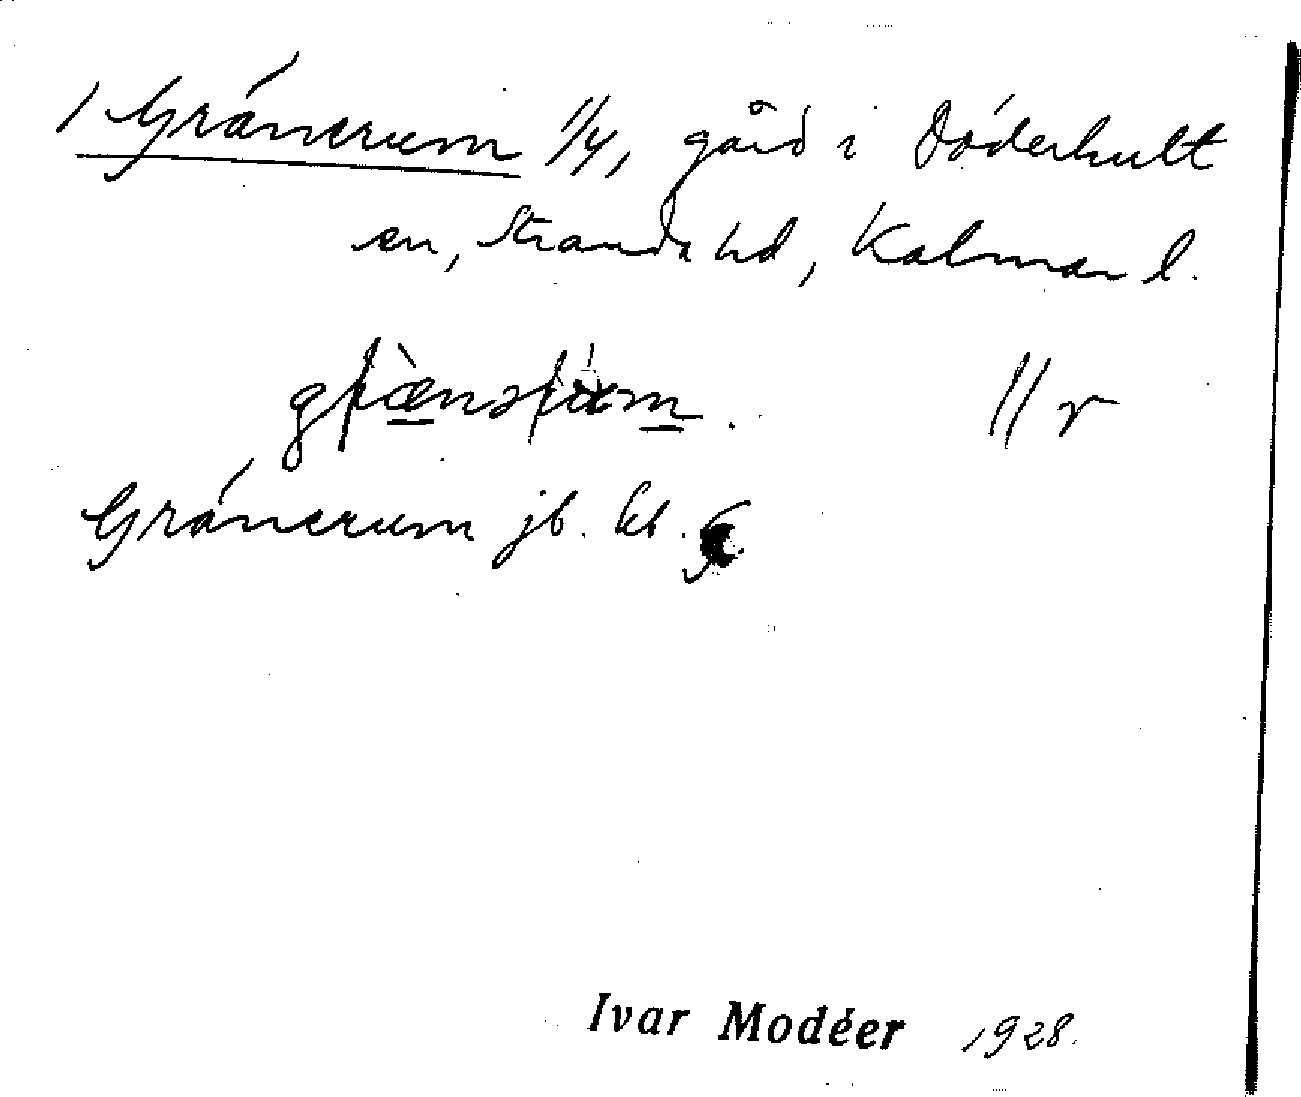 / Gränerum 1/4, gård i Döderhult
sn, Stranda hd, Kalmar l.
// r
Gränerum jb. kb.
Ivar Modéer 1928.